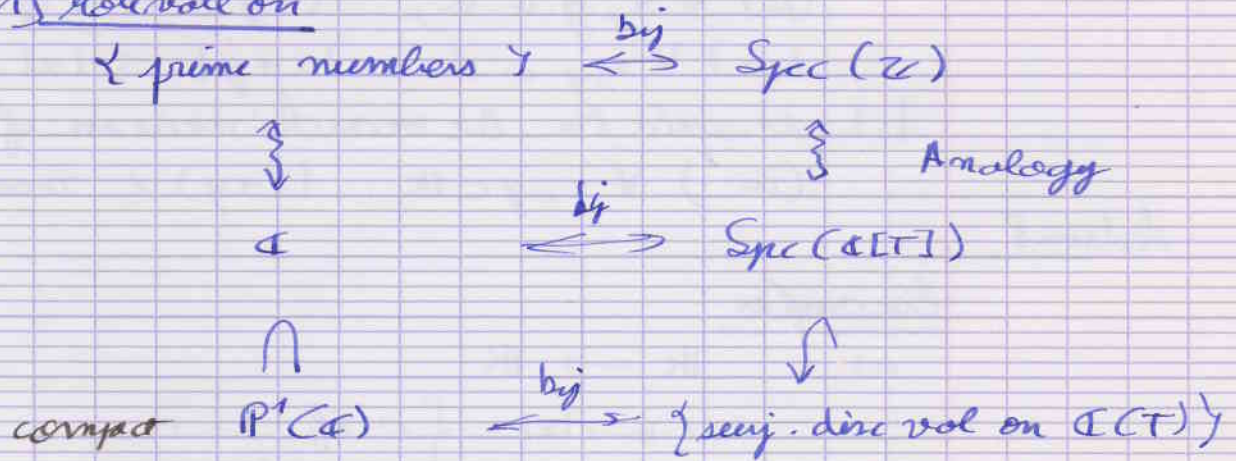 1) Motivation
{ prime numbers } <-> bij Spec(ℤ)
Analogy
ℂ <-> bij Spec(ℂ[T])
∩
compact ℙ¹(ℂ) <-> bij { surj. disc val on ℂ(T) }